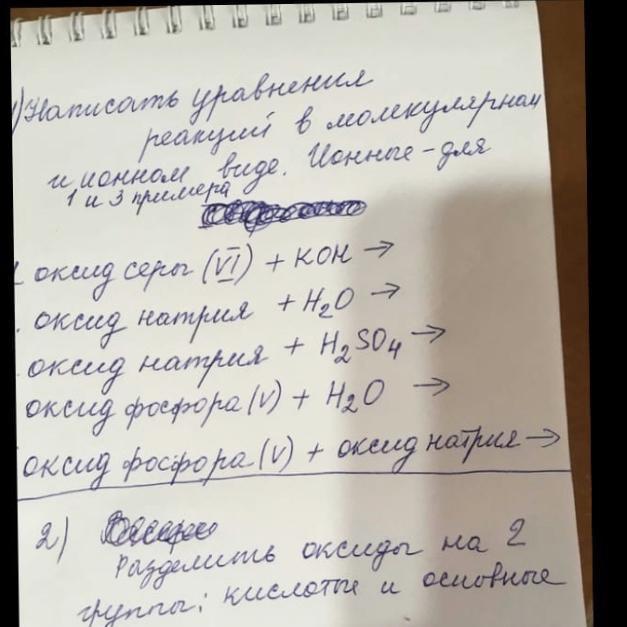 1) Написать уравнения
реакций в молекулярном
и ионном виде. Ионные - для
1 и 3 примера
оксид серы (VI) + KOH →
оксид натрия + H₂O →
оксид натрия + H₂SO₄ →
оксид фосфора (V) + H₂O →
оксид фосфора (V) + оксид натрия →
2)
Разделить оксиды на 2
группы: кислотные и основные